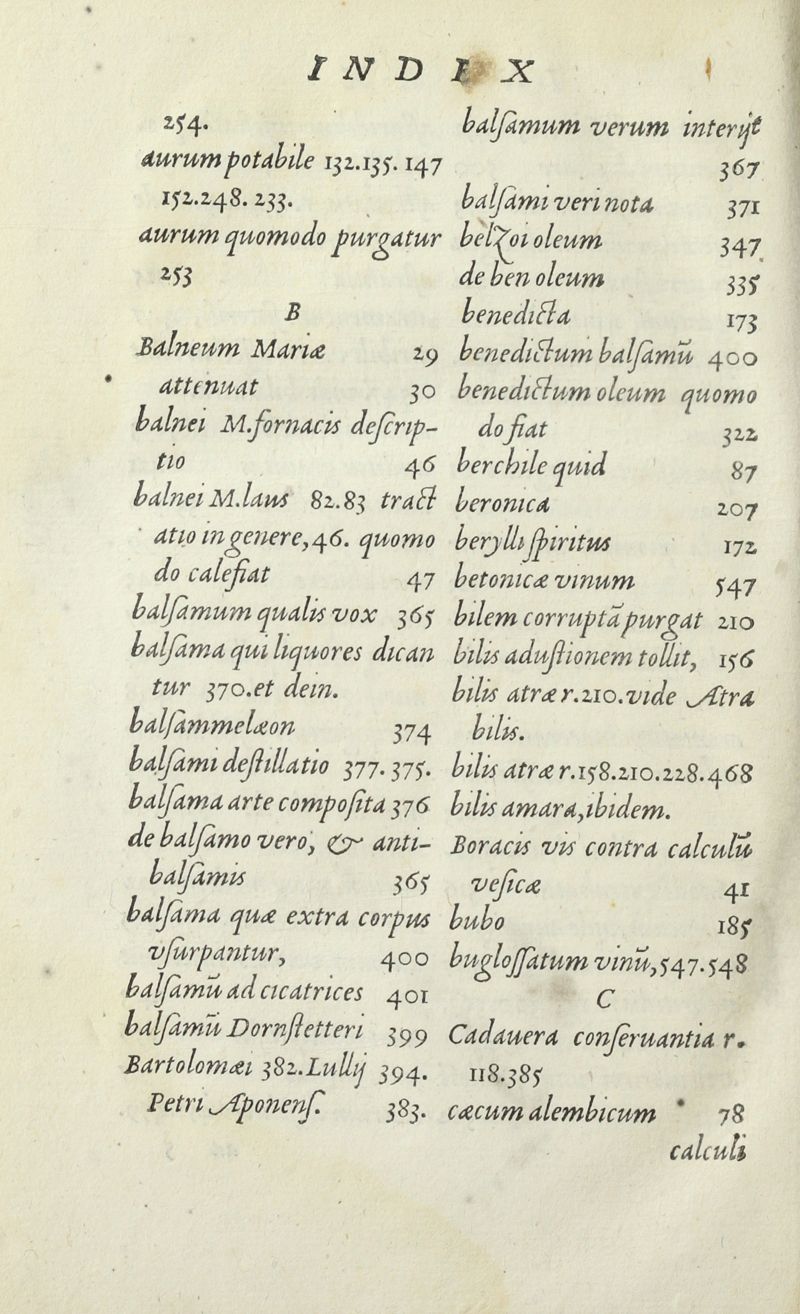 INDEX
254.
aurum potabile 132.135. 147
152.248. 233.
aurum quomodo purgatur
253
B
Balneum Mariæ 29
attenuat 30
balnei M.fornacis deſcrip-
tio 46
balnei M.laus 82.83 tract
atio in genere,46. quomo
do calefiat 47
balſamum qualis vox 365
balſama qui liquores dican
tur 370.et dein.
balſammelæon 374
balſami deſtillatio 377.375.
balſama arte compoſita 376
de balſamo vero, & anti-
balſamis 365
balſama quæ extra corpus
vſurpantur, 400
balſamū ad cicatrices 401
balſamū Dornſtetteri 399
Bartolomæi 382.Lullij 394.
Petri Aponenſ. 383.
balſamum verum interijt
367
balſami veri nota 371
belzoi oleum 347
de ben oleum 335
benedicta 173
benedictum balſamū 400
benedictum oleum quomo
do fiat 322
berchile quid 87
beronica 207
berylli ſpiritus 172
betonicæ vinum 547
bilem corruptā purgat 210
bilis aduſtionem tollit, 156
bilis atræ r.210.vide Atra
bilis.
bilis atræ r.158.210.228.468
bilis amara,ibidem.
Boracis vis contra calculū
veſicæ 41
bubo 185
bugloſſatum vinū,547.548
C
Cadauera conſeruantia r.
118.385
cæcum alembicum 78
calculi